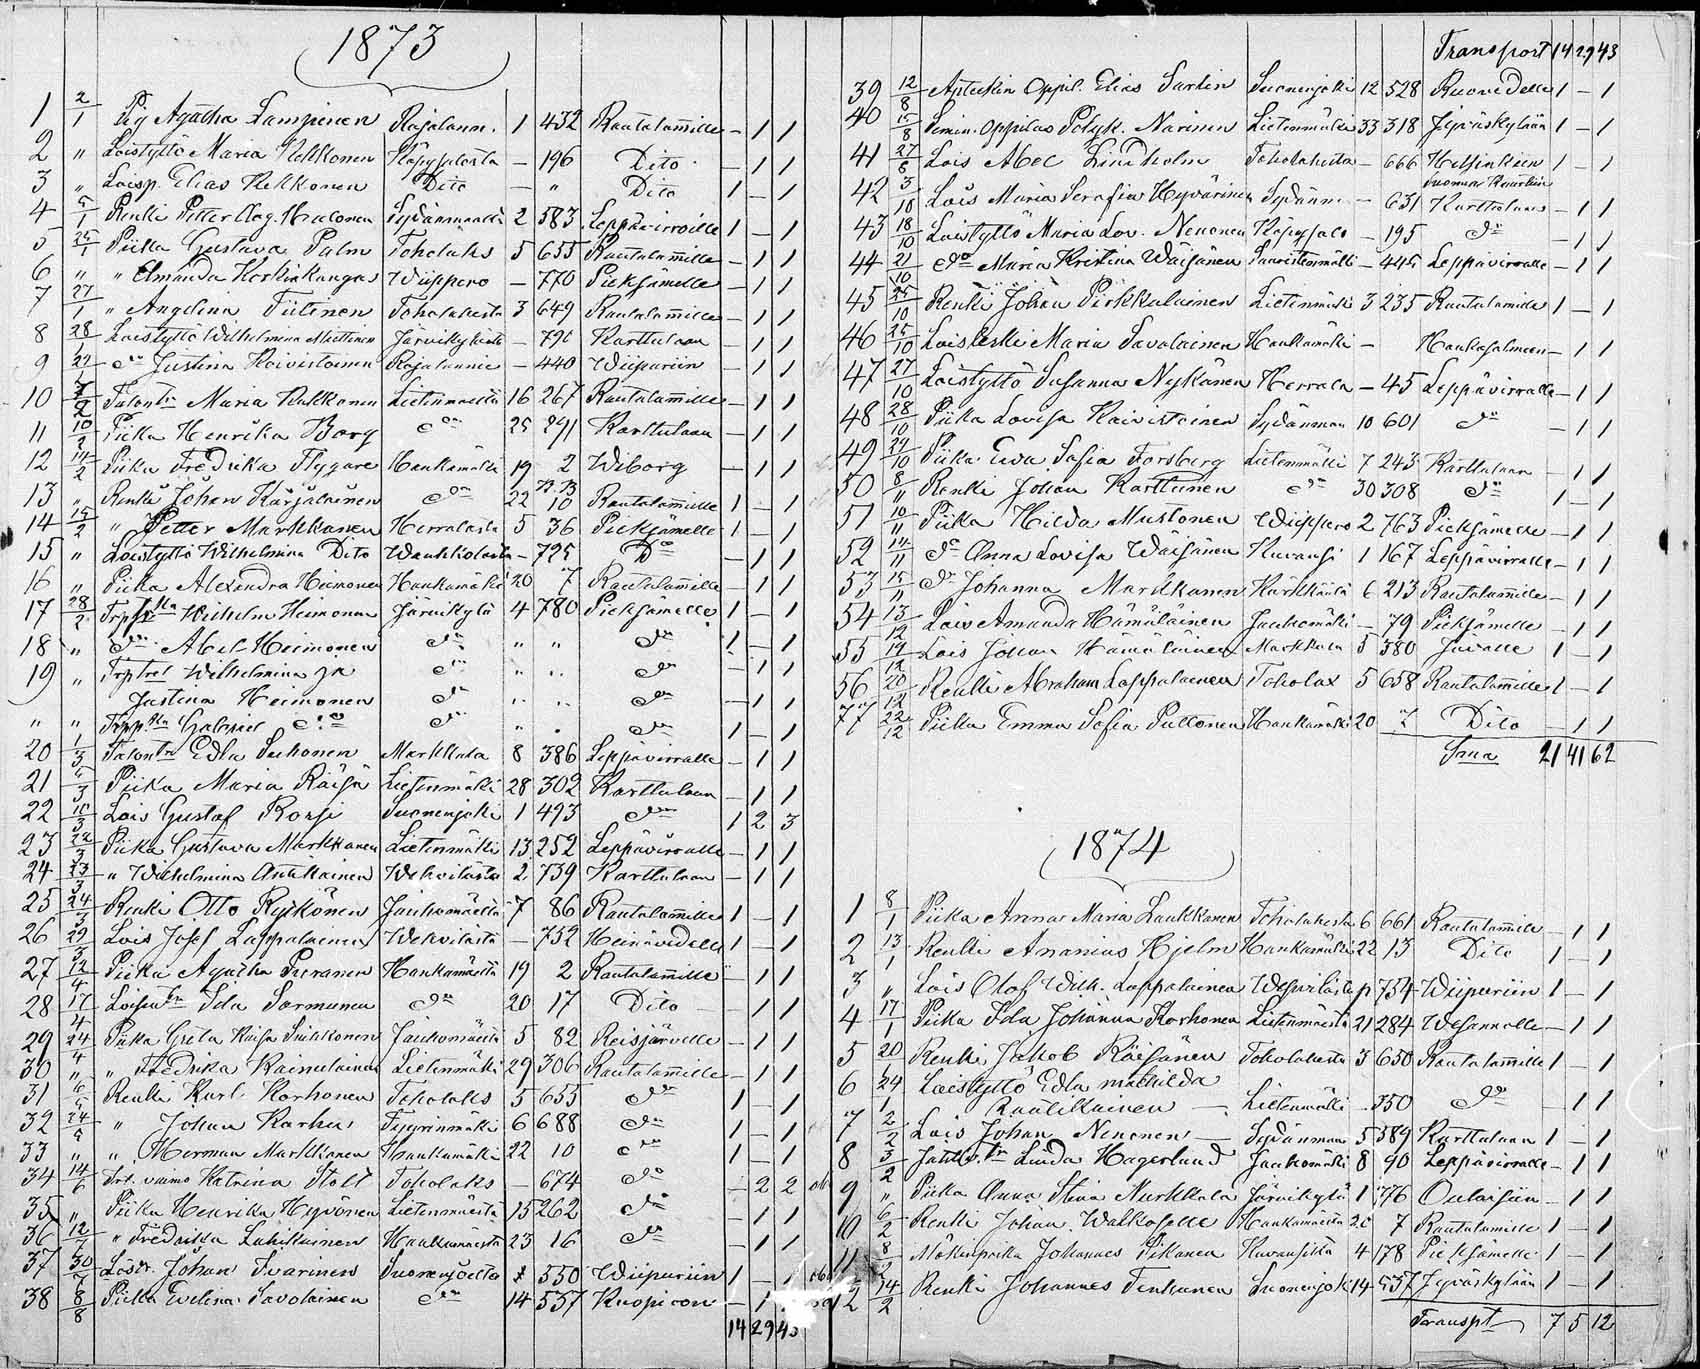 1873
1 2/1 Pig Agatha Lampinen Rajalann. 1 432 Rautalammille - 1 1
2 " Loistyttö Maria Kekkonen Käpysalosta - 196 Dito - 1 1
3 " Loisp. Elias Kekkonen Dito - " Dito 1 - 1
4 5/1 Renki Petter Aug. Halonen Sydänmaalta 2 583 Leppävirroille 1 - 1
5 25/1 Piika Gustava Palm Toholaks 5 655 Rautalammille - 1 1
6 " " Elmanda Koskinkangas Wiippero - 770 Pieksämelle - 1 1
7 27/1 " Angelina Tiitinen Toholahesta 3 649 Rautalammille - 1 1
8 28/1 Loistyttö Wilhelmina Miettinen Järvikylästä - 790 Karttulaan - 1 1
9 29 do Justina Koivistoinen Rajalannie - 440 Wiipuriin - 1 1
10 2/2 Talontr Maria Kukkonen Lietenmäeltä 16 267 Rautalammille - 1 1
11 10/2 Piika Henrika Borg do 25 291 Karttulaan - 1 1
12 14/2 Piika Fredrika Flygare Haukamäki 19 2 Wiborg - 1 1
13 " Renki Johan Karjalainen do 22 10 Rautalammille 1 - 1
14 15/2 " Petter Markkanen Herralasta 5 36 Pieksämelle 1 - 1
15 " Loistyttö Wilhelmina Dito Wauhkolasta - 725 Do - 1 1
16 " Piika Alexandra Heimonen Haukamäki 20 7 Rautalammille - 1 1
17 28/2 Trp Wilhelm Heimonen Järvikylä 4 780 Pieksämelle 1 - 1
18 " do Abel Heimonen do " " do 1 - 1
19 " Trp Wilhelmina ja do " " do - 1 1
Justina Heimonen do " " do - 1 1
" " Trpp. Gabriel do do " " do 1 - 1
20 1/3 Talontr Edla Suhonen Markkala 8 386 Leppävirralle - 1 1
21 5/3 Piika Maria Räisä Lietenmäki 28 302 Karttulaan - 1 1
22 10/3 Lois Gustaf Ronji Suonenjoki 1 493 do 1 2 3
23 22/3 Piika Gustava Markkanen Lietenmäki 13 252 Leppävirralle - 1 1
24 23/3 " Wilhelmina Antikainen Wehvilästä 2 739 Karttulaan - 1 1
25 24/3 Renki Otto Rytkönen Jauhomäeltä 7 86 Rautalammille 1 - 1
26 29/3 Lois Josef Lappalainen Wehvilästä - 752 Heinävedelle 1 - 1
27 12/4 Piika Agatha Puranen Haukamäeltä 19 2 Rautalammille - 1 1
28 17/4 Loisentr Ida Sormunen do 20 17 Dito - 1 1
29 24/4 Piika Greta Kaisa Pulkkonen Jauhomäeltä 5 82 Reisjärvelle - 1 1
30 " " Fredrika Raimolainen Lietenmäki 29 306 Rautalammille - 1 1
31 6/5 Renki Karl Korhonen Toholaks 5 655 do 1 - 1
32 24/5 " Johan Karhu Tyyrinmäki 6 688 do 1 - 1
33 " " Herman Markkanen Haukamäki 22 10 do 1 - 1
34 14/6 vaimo Katrina Stolt Toholaks - 674 do - 2 2
35 " Piika Henrika Hyvönen Lietenmäestä 15 262 do - 1 1
36 12/7 " Fredrika Luhikainen Haukamäestä 23 16 do - 1 1
37 30/7 Johan Ivarinen Suonenjoelta 550 Wiipuriin 1 - 1
38 8/8 Piika Evelina Savolainen do 14 537 Kuopioon - 1
14 29 43
Transport 14 29 43
39 12/8 Apteekin Oppil. Elias Sarlin Suonenjoki 12 528 Ruovedelle 1 - 1
40 15/8 Semin. Oppilas Polyk. Narinen Lietenmäki 33 318 Jyväskylään 1 - 1
41 27/8 Lois Abel Lindholm Toholahesta - 666 Helsinkiin 1 - 1
Suomen Kaartiin
42 3/10 Lois Maria Serafia Hyvärinen Sydänm - 631 Karttulaan - 1 1
43 18/10 Loistyttö Maria Lov. Nenonen Käpysalo - 195 do - 1 1
44 21/10 do Maria Kristina Wäisänen Saaristonmäki - 445 Leppävirralle - 1 1
45 25/10 Renki Johan Pirkkalainen Lietenmäki 3 235 Rautalammille 1 - 1
46 25/10 Loisleski Maria Savolainen Haukamäki - Hankasalmeen - 1 1
47 27/10 Loistyttö Susanna Nykänen Herrala - 45 Leppävirralle - 1 1
48 28/10 Piika Lovisa Koivistoinen Sydänmaa 10 601 do - 1 1
49 29/10 Piika Eva Sofia Forsberg Lietenmäki 7 243 Karttulaan - 1 1
50 8/11 Renki Johan Karttunen do 30 308 do 1 - 1
51 10/11 Piika Hilda Mustonen Wiippero 2 763 Pieksämelle - 1 1
52 14/11 do Anna Lovisa Wäisänen Kuvansi 1 167 Leppävirralle - 1 1
53 15/11 do Johanna Markkanen Kärkkäälä 6 213 Rautalammille - 1 1
54 13/12 Lois Amanda Hämäläinen Jauhomäki - 79 Pieksämelle - 1 1
55 19/12 Lois Johan Hämäläinen Markkala 5 380 Juvalle 1 - 1
56 20/12 Renki Abraham Lappalainen Toholax 5 658 Rautalammille 1 - 1
77 22/12 Piika Emma Sofia Pullonen Haukamäki 20 7 Dito 1 1
Sma 21 41 62
1874
1 8/1 Piika Anna Maria Laukkanen Toholahesta 6 661 Rautalammille - 1 1
2 13/1 Renki Ananius Hjelm Haukamäki 22 13 Dito 1 - 1
3 " Lois Olof Wilh. Lappalainen Wehvilästä p 754 Wiipuriin 1 - 1
4 17/1 Piika Ida Johanna Korhonen Lietenmäestä 21 284 Wesannolle - 1 1
5 20/1 Renki Jakob Räisänen Toholahesta 3 650 Rautalammille 1 - 1
6 24/1 Loistyttö Edla Mathilda
Rautikainen - Lietenmäki - 350 do - 1 1
7 2/2 Lois Johan Nenonen - Sydänmaa 5 589 Karttulaan 1 - 1
8 3/2 Linda Hagerlund Jauhomäki 8 90 Leppävirralle - 1 1
9 " Piika Anna Stina Markkala Järvikylä 1 776 Oulaisiin - 1 1
10 6/2 Renki Johan Walkosalle Haukamäestä 20 7 Rautalammille 1 - 1
11 8/2 Mökinpoika Johannes Pikanen Kuvansista 4 178 Pieksämelle 1 - 1
12 14/2 Renki Johannes Tenhunen Suonenjok 14 537 Jyväskylään 1 - 1
Transpt 7 5 12